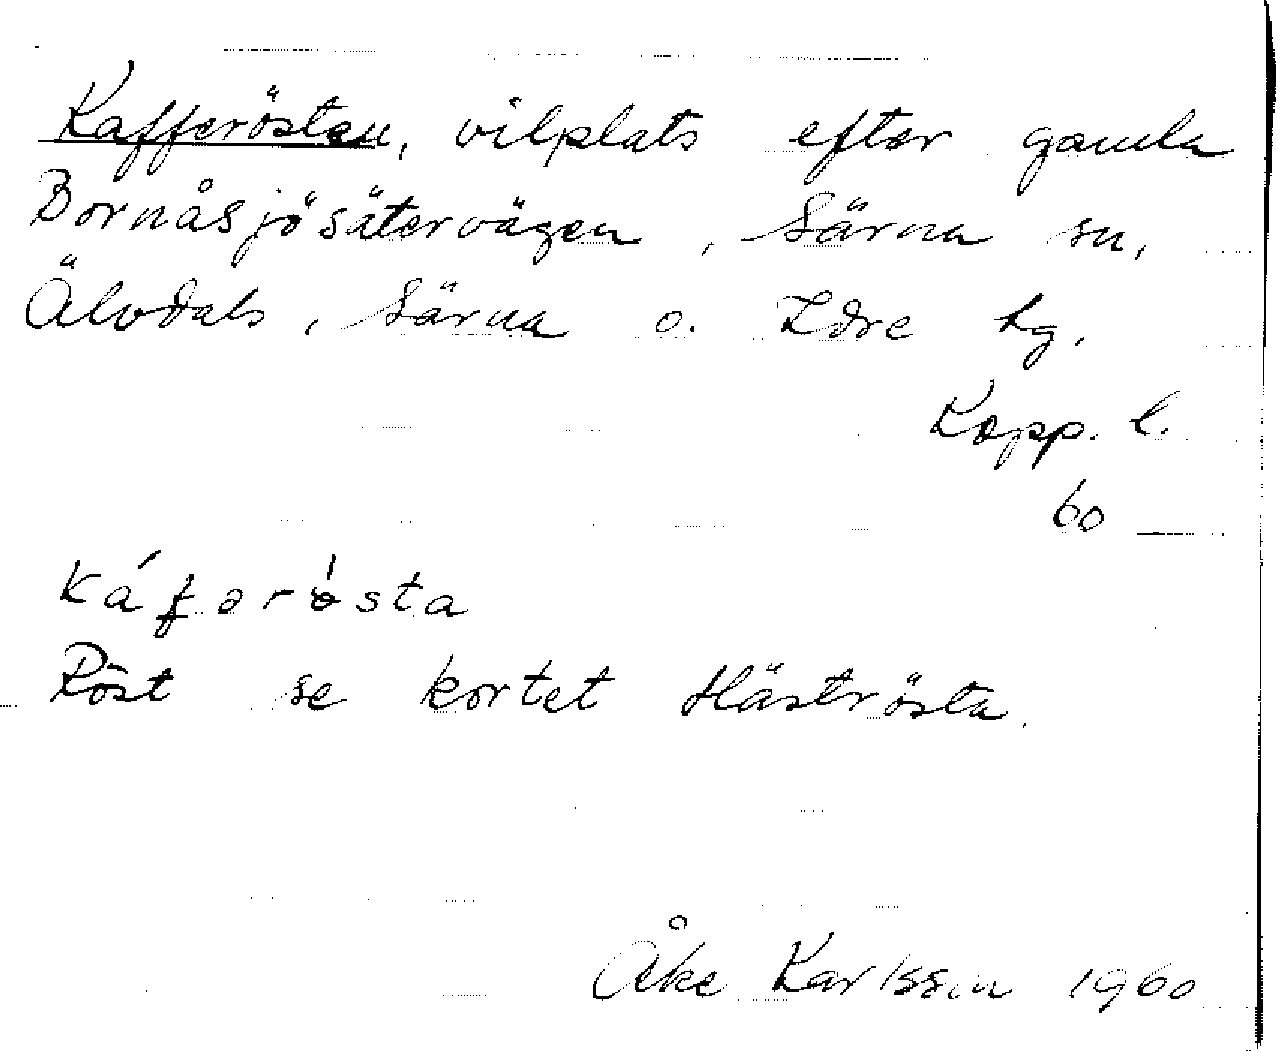 Kafferösten, vilplats efter gamla
Bornåsjösätervägen, Särna sn,
Älvdals, Särna o. Idre tg.
Kopp. l.
60
káfərǿsta
Röst se kortet Häströsta.
Åke Karlsson 1960